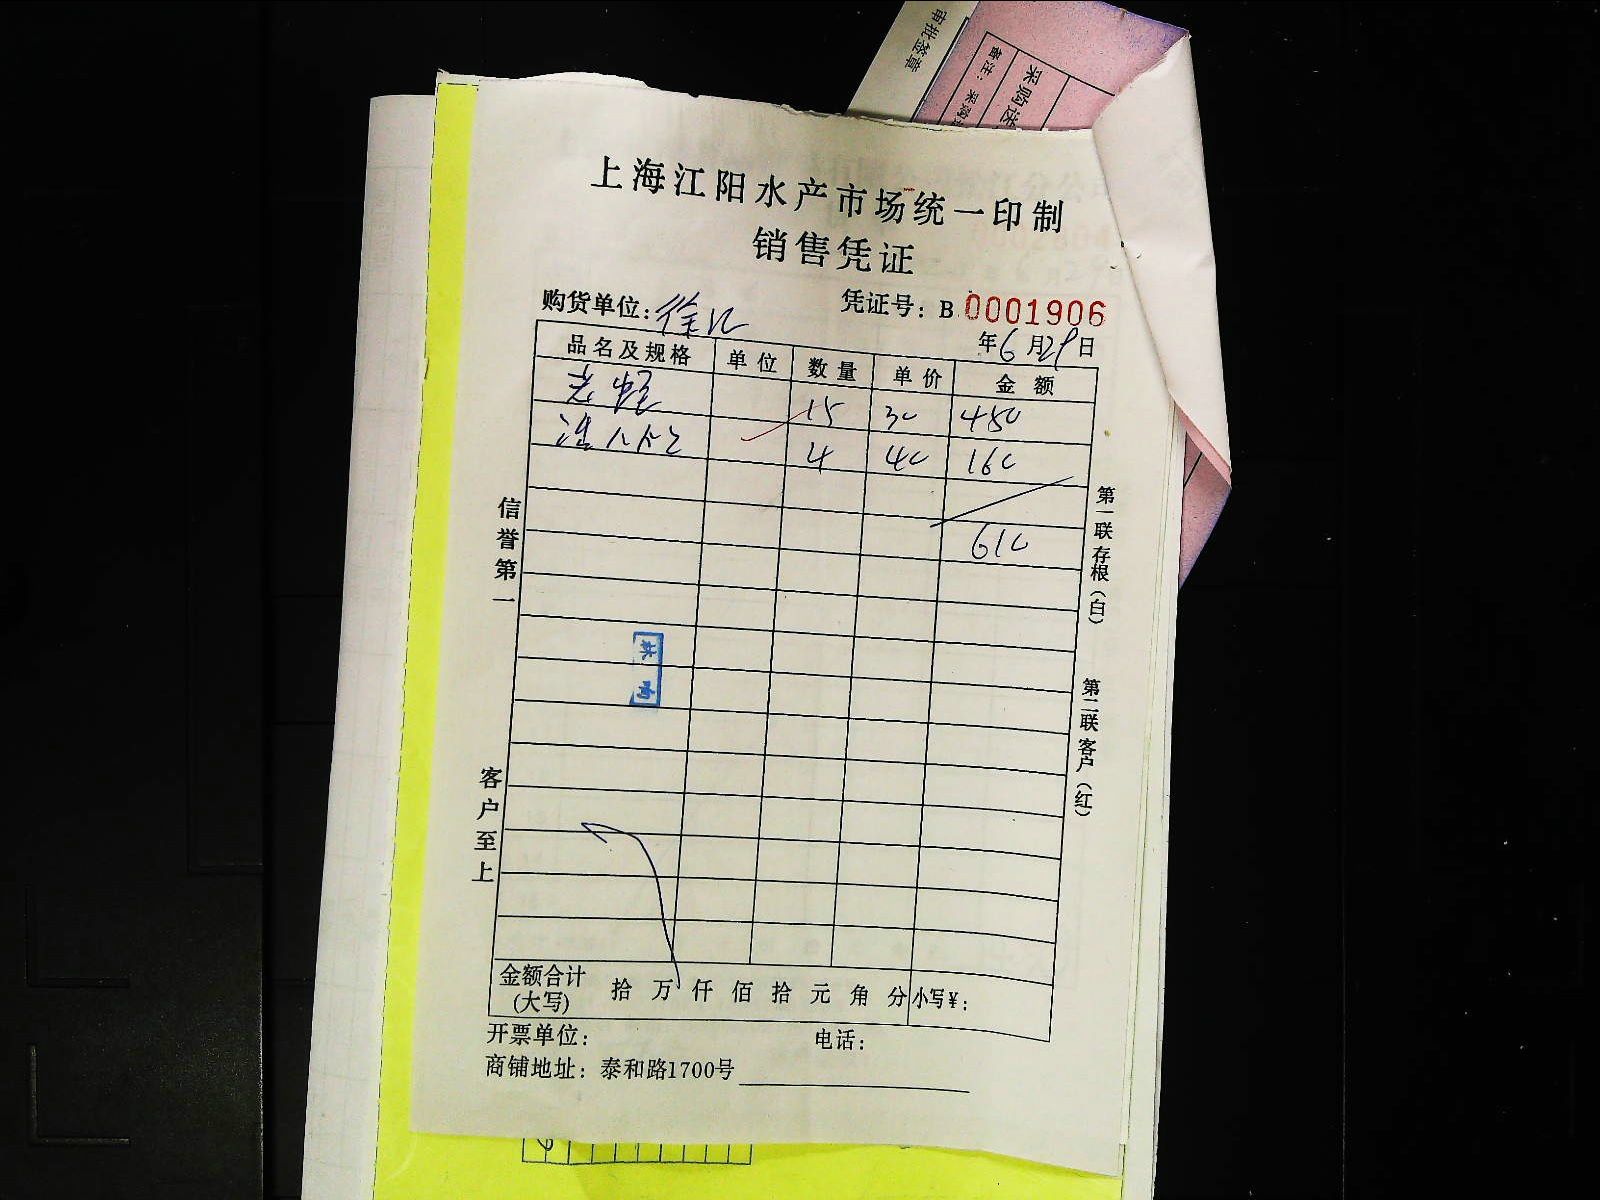 审批签章
备注：采购
采购送
上海江阳水产市场统一印制
销售凭证
购货单位：徐汇 凭证号：B 0001906
年6月29日
品名及规格 单位 数量 单价 金额
15 30 450
4 40 160
610
信誉第一
客户至上
第一联存根（白）
第二联客户（红）
金额合计（大写） 拾 万 仟 佰 拾 元 角 分 小写￥：
开票单位： 电话：
商铺地址：泰和路1700号